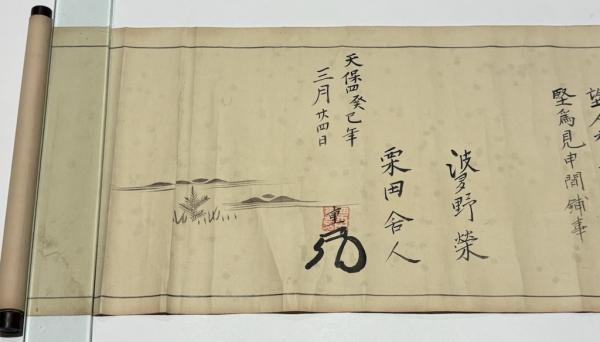 堅為見申間鋪事
波多野榮
栗田舎人
天保四癸巳年
三月廿四日
重